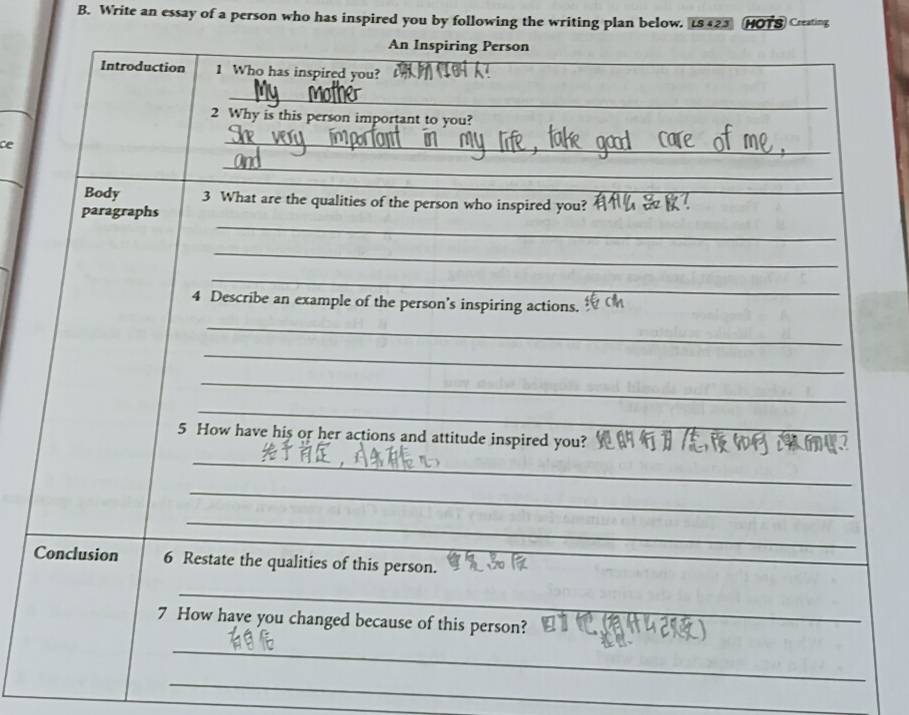 B. Write an essay of a person who has inspired you by following the writing plan below. LS 4.2.3 HOTS Creating
An Inspiring Person
Introduction
1 Who has inspired you?
My mother
2 Why is this person important to you?
She very important in my life, take good care of me,
and
ce
Body
paragraphs
3 What are the qualities of the person who inspired you? 有什么品质?
4 Describe an example of the person's inspiring actions.
5 How have his or her actions and attitude inspired you?
给予肯定
Conclusion
6 Restate the qualities of this person.
7 How have you changed because of this person?
有自信